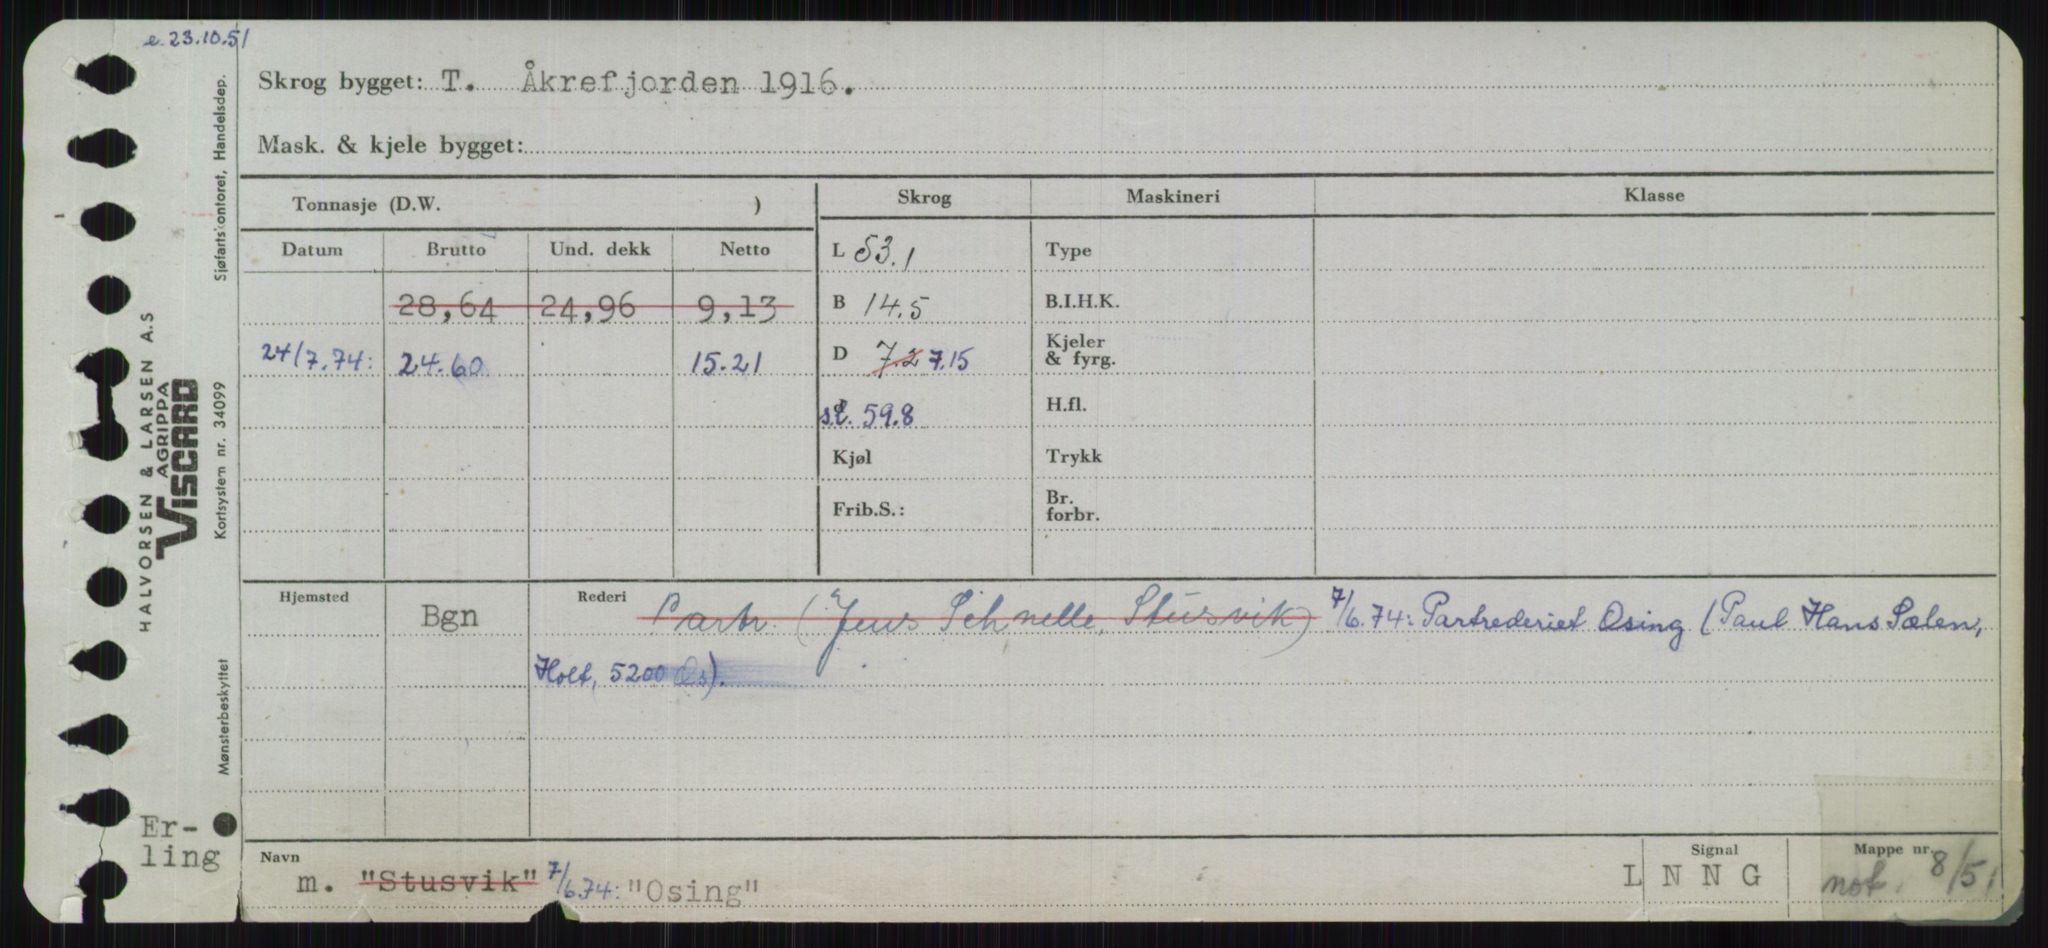 e. 23.10.51
Skrog bygget: T. Åkrefjorden 1916.
Mask. & kjele bygget:
Tonnasje (D.W. )
Skrog Maskineri Klasse
Datum Brutto Und. dekk Netto
L 53.1 Type
28,64 24,96 9,13
B 14.5 B.I.H.K.
24/7.74: 24.60 15.21
D 7.2 7.15 Kjeler & fyrg.
s.l. 59.8 H.fl.
Kjøl Trykk
Frib.S.: Br. forbr.
Hjemsted Bgn Rederi Partr. (Jens Schnelle, Stusvik) 7/6.74: Partrederiet Osing (Paul Hans Sælen,
Holt, 5200 Os).
Navn m. "Stusvik" 7/6.74: "Osing"
Signal LNNG
Mappe nr. not. 8/51
Er-
ling
HALVORSEN & LARSEN A.S
AGRIPPA
VISCARD
Sjøfartskontoret, Handelsdep.
Kortsystem nr. 34099
Mønsterbeskyttet